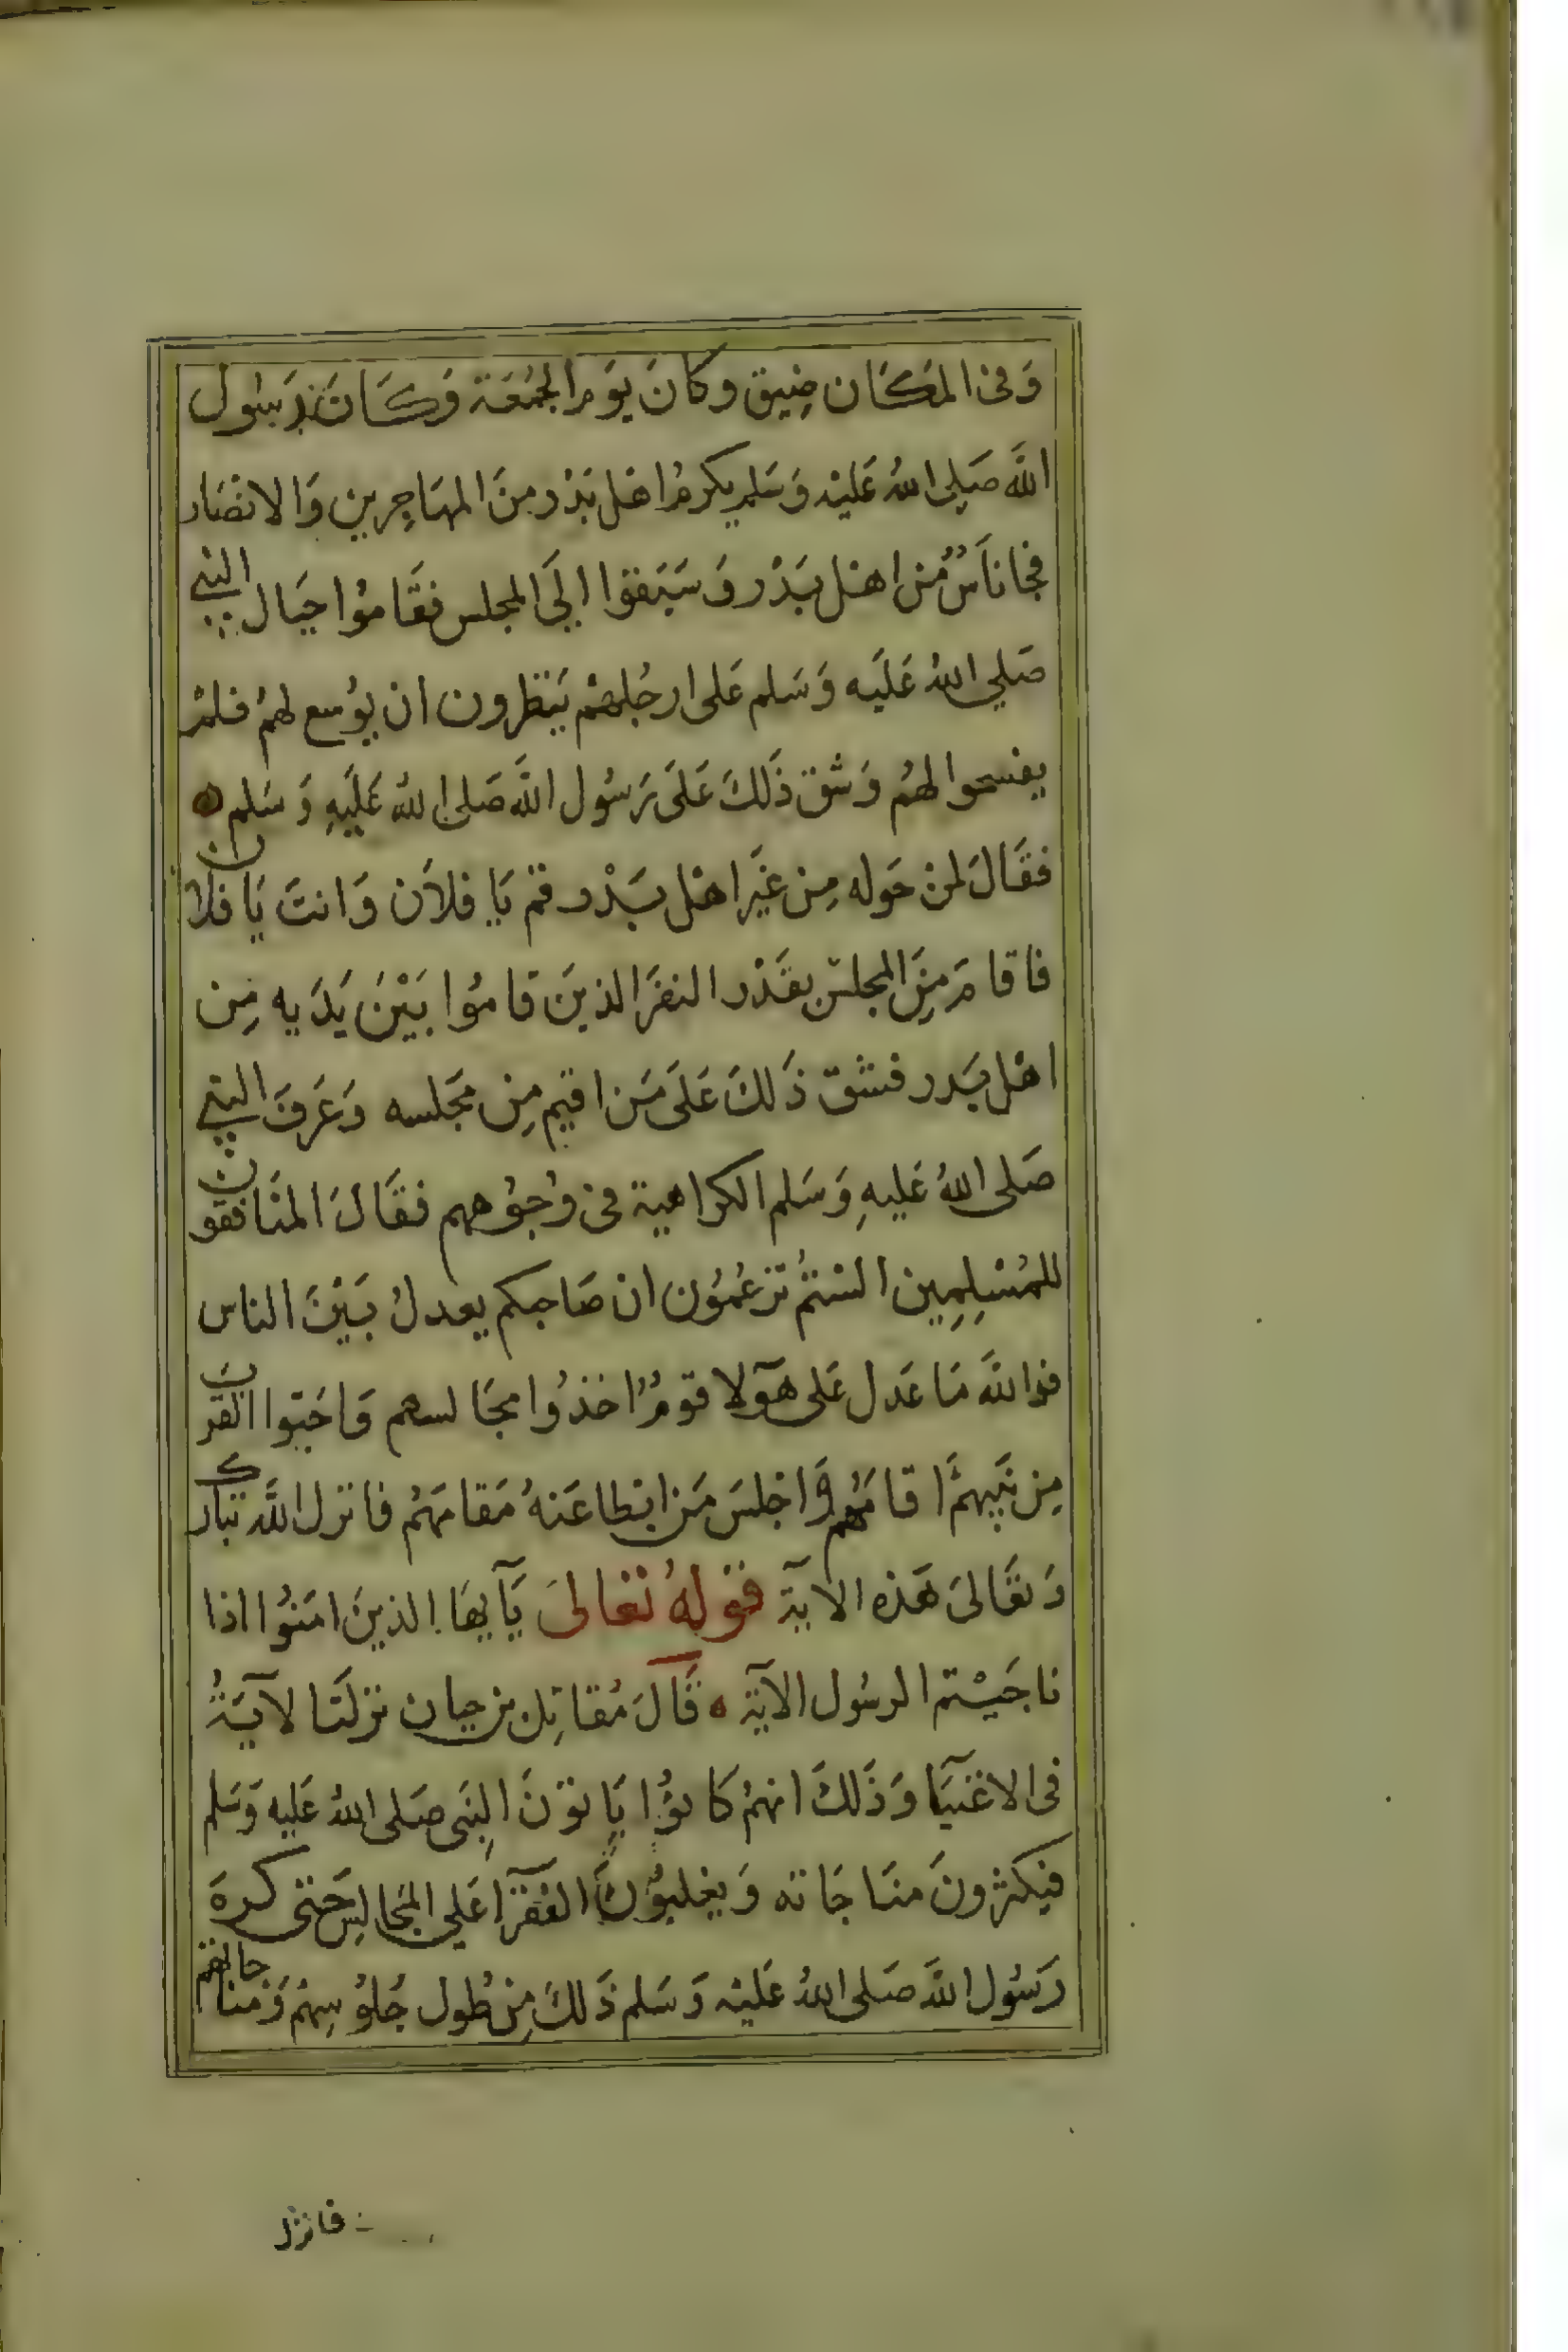 وَفى المَكَان ضِيق وكانَ يوَم الجمُعَة وَكَانَ رَسُول
اللَّه صَلى اللهُ عَليْه وَسَلم يكرمُ اهْل بَدْر منَ المهَاجِرين وَالانصَار
فجا ناَسٌ مُن اهْل بَدْر وَسَبَقوا الىَ المجلس فقَامُوا حيَال النبي
صَلي اللهُ عَليَه وَسَلم عَلى ارجُلهمْ يَنتظرون ان يوُسع لهمُ فلمْ
يفسحوا لهمُ وَشق ذَلكَ عَلىَ رَسُول اللَّه صَلى اللهُ عَليَهِ وَسَلم ه
فقَالَ لمنْ حَوله مِن غَيَر اهْل بَدْر قمْ يَا فلاَن وَانتَ يَا فلان
فاقامَ مِنَ المجلسْ بقَدْر النفرَ الذينَ قامُوا بَيْنَ يَدَيه مِن
اهْل بَدر فشق ذَلكَ عَلىَ مَن اقيم مِن مَجلسه وَعَرفَ النبي
صَلى اللهُ عَليهِ وَسَلم الكراهية فى وُجوُههم فقَالَ المنَافقون
للمُسْلِمِين السْتمُ تزعُمُون ان صَاحبكم يعدلُ بَيْنَ الناس
فوَاللَّه مَا عَدل عَلى هَوَلا قومٌ اخذُوا مجَالسهم وَاحَبّوا القربَ
مِن نَبيهمَّ اقامَهُم وَاجلسَ مَن ابطا عَنهُ مَقامَهُم فانزل اللَّه تبارك
وَتعَالىَ هَذه الآية قوْلهُ تعَالىَ يَآيهَا الذينَ امَنُوا اذا
ناجَيْتم الرسُول الآيَة ه قَالَ مُقاتِل بن حيان نزلتَ الآيَةُ
فى الاغنيَآ وَذَلكَ انهمُ كانوُا يَاتوْنَ النِبَى صَلى اللهُ عَليه وَسَلم
فيَكثرونَ منَاجَاته وَيغلبوُنَ الفقرَآ عَلي المجَالِس حَتى كرهَ
رَسُول اللَّه صَلى اللهُ عَليْه وَسَلم ذَلكَ مِنْ طُول جُلوُسِهمْ وَمناجاتهم
فانزل